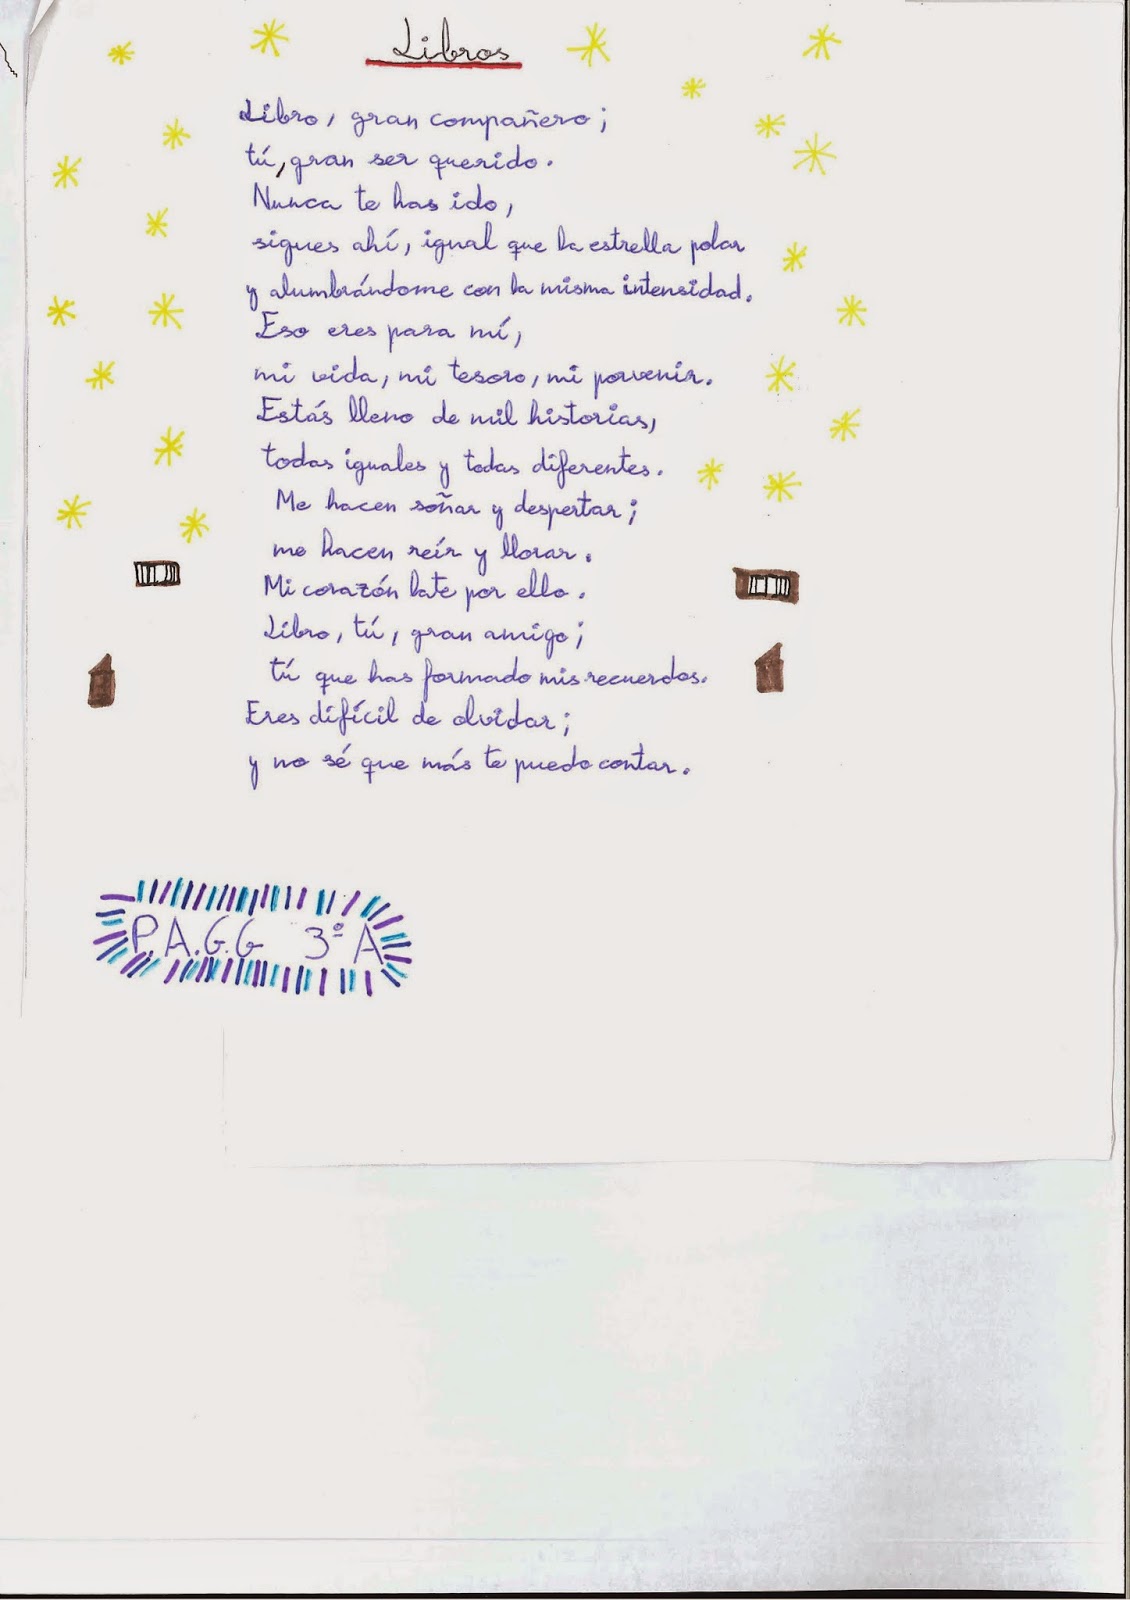 Libros
Libro, gran compañero;
tú, gran ser querido.
Nunca te has ido,
sigues ahí, igual que la estrella polar
y alumbrándome con la misma intensidad.
Eso eres para mí,
mi vida, mi tesoro, mi porvenir.
Estás lleno de mil historias,
todas iguales y todas diferentes.
Me hacen soñar y despertar;
me hacen reír y llorar.
Mi corazón late por ello.
Libro, tú, gran amigo;
tú que has formado mis recuerdos.
Eres difícil de olvidar;
y no sé que más te puedo contar.
P.A.G.G 3º A